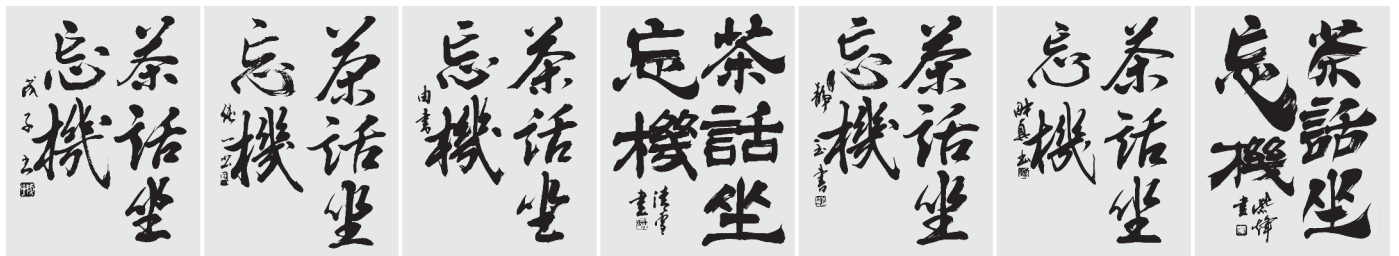 茶話坐
忘機
戊子
茶話坐
忘機
茶話坐
忘機
由書
茶話坐
忘機
清雲
書
茶話坐
忘機
玉書
茶話坐
忘機
茶話坐
忘機
書